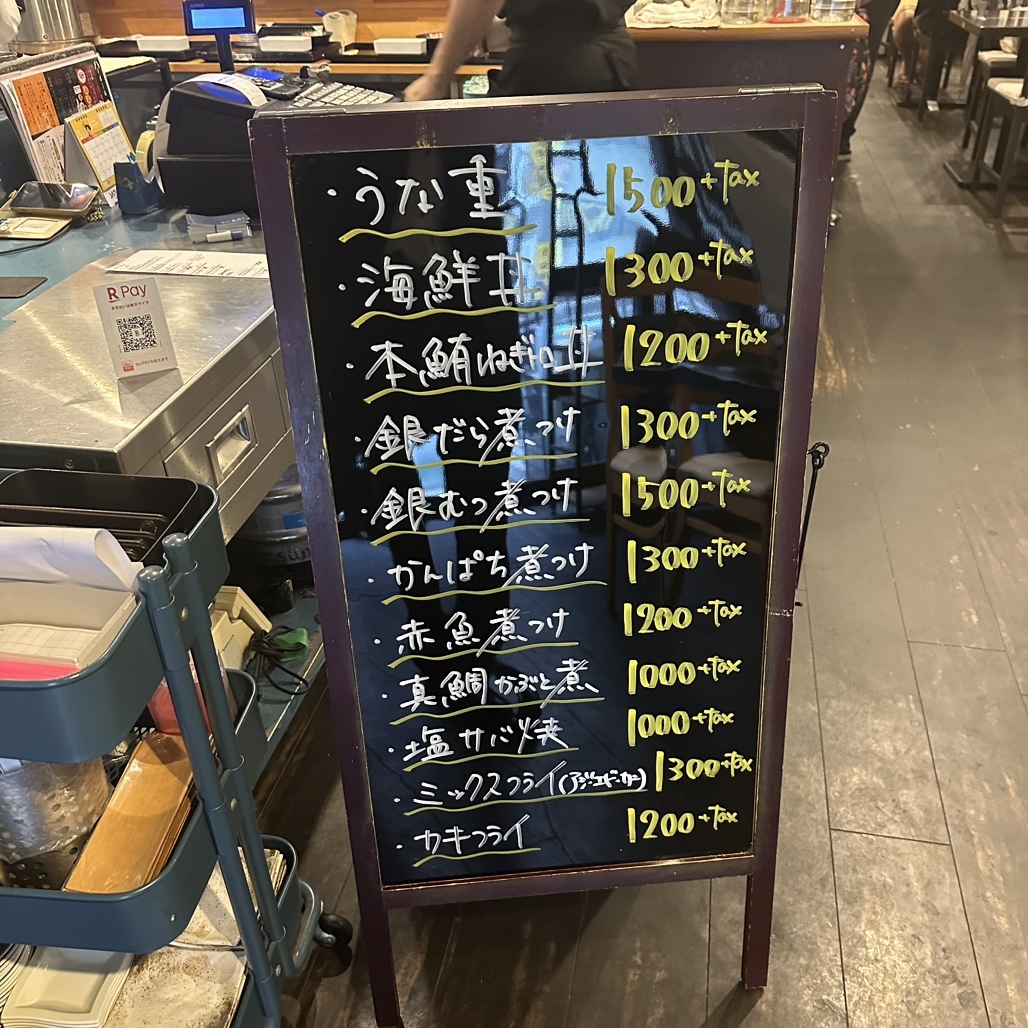 ・うな重 1500+tax
・海鮮丼 1300+tax
・本鮪ねぎトロ丼 1200+tax
・銀だら煮つけ 1300+tax
・銀むつ煮つけ 1500+tax
・かんぱち煮つけ 1300+tax
・赤魚煮つけ 1200+tax
・真鯛かぶと煮 1000+tax
・塩サバ焼 1000+tax
・ミックスフライ(アジ・エビ・カキ) 1300+tax
・カキフライ 1200+tax
R Pay